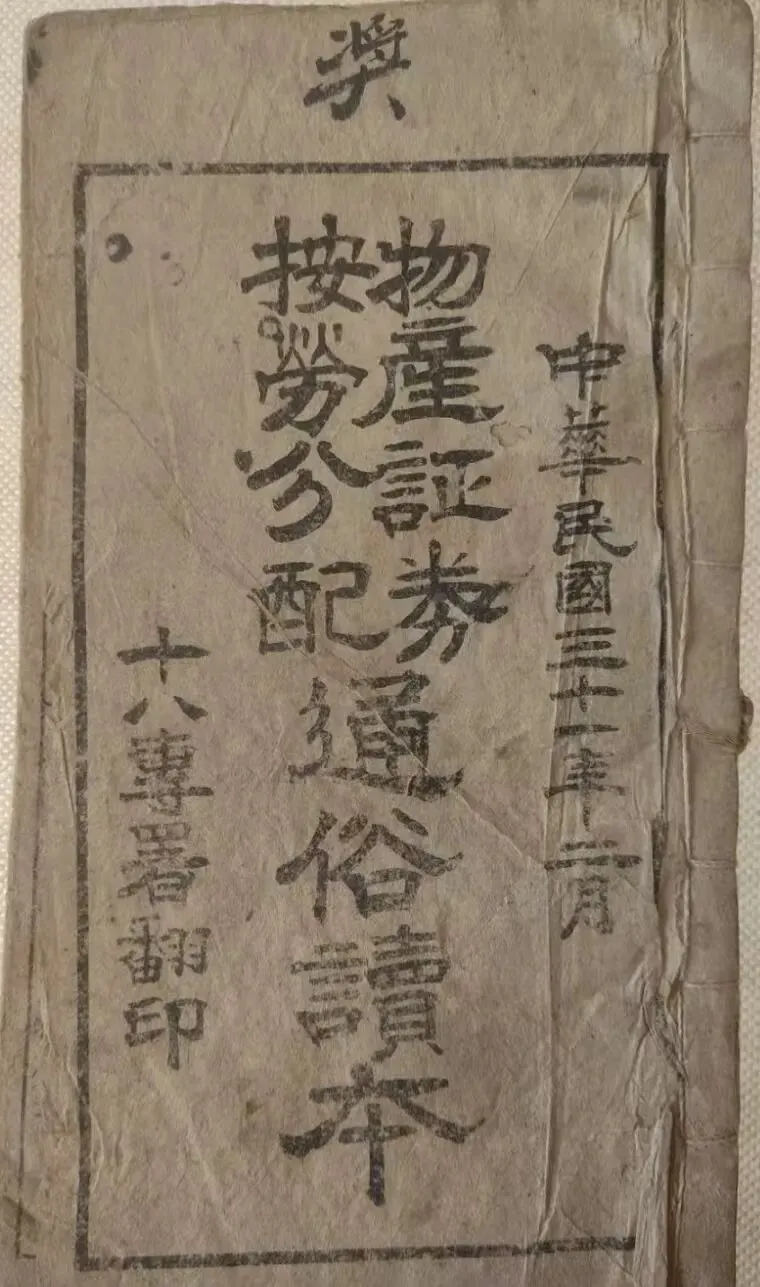 奬
中華民國三十一年二月
物產証券
按勞分配
通俗讀本
十八專署翻印